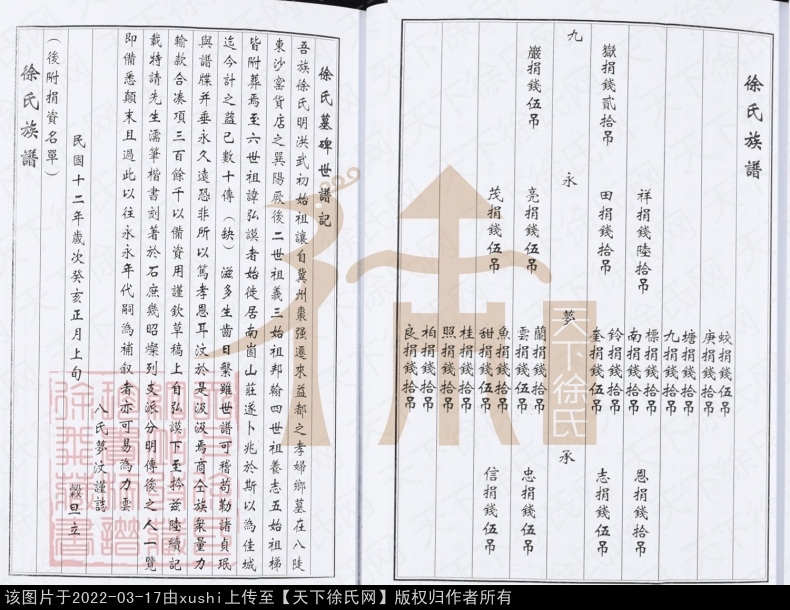 徐氏族譜
蛟捐錢伍吊
庚捐錢拾吊
塘捐錢拾吊
九捐錢拾吊
祥捐錢陸拾吊
標捐錢拾吊
恩捐錢拾吊
南捐錢拾吊
嶽捐錢貳拾吊
田捐錢拾吊
鈴捐錢拾吊
志捐錢伍吊
奎捐錢伍吊
九
永
夢
承
蘭捐錢拾吊
巖捐錢伍吊
亮捐錢伍吊
雲捐錢伍吊
忠捐錢伍吊
魚捐錢拾吊
茂捐錢伍吊
甜捐錢伍吊
信捐錢伍吊
桂捐錢拾吊
照捐錢拾吊
柏捐錢拾吊
良捐錢拾吊
徐氏墓碑世譜記
吾族徐氏明洪武初始祖讓自冀州棗强遷來益都之孝婦鄉墓在八陡
東沙窑貨店之巽陽厥後二世祖義三始祖邦翰四世祖養志五始祖梯
皆附葬焉至六世祖諱弘謨者始徙居南崮山莊遂卜兆於斯以為佳城
迄今計之益已數十傳（缺）滋多生齒日繁雖世譜可稽苟勒諸貞珉
與譜牒并垂永久遠恐非所以篤孝恩耳汶於是汲汲焉商仝族衆量力
輸款合湊項三百餘千以備資用謹欽草稿上自弘謨下至於兹陸續記
載特請先生濡筆楷書刻著於石庶幾昭燦列支派分明傳後之人一覽
即備悉顛末且過此以往永永年代嗣為補叙者亦可易為力雲
民國十二年歲次癸亥正月上旬
八氏夢汶謹誌
穀旦立
（後附捐資名單）
徐氏族譜
天下徐氏
该图片于2022-03-17由xushi上传至【天下徐氏网】版权归作者所有